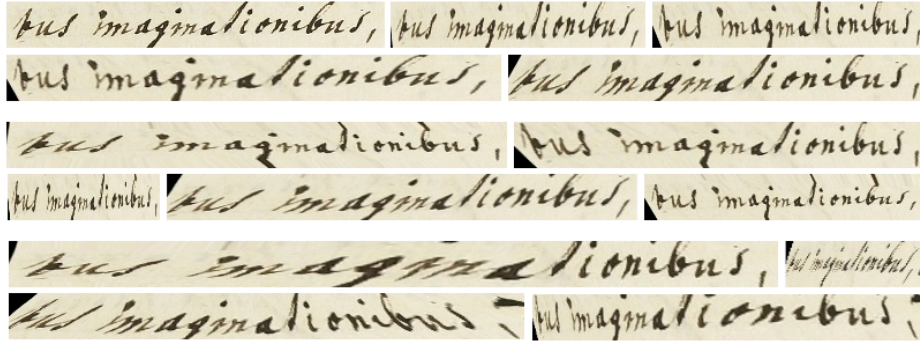 bus imaginationibus, bus imaginationibus, bus imaginationibus,
bus imaginationibus, bus imaginationibus,
bus imaginationibus, bus imaginationibus,
bus imaginationibus, bus imaginationibus, bus imaginationibus,
bus imaginationibus, bus imaginationibus,
bus imaginationibus, bus imaginationibus,